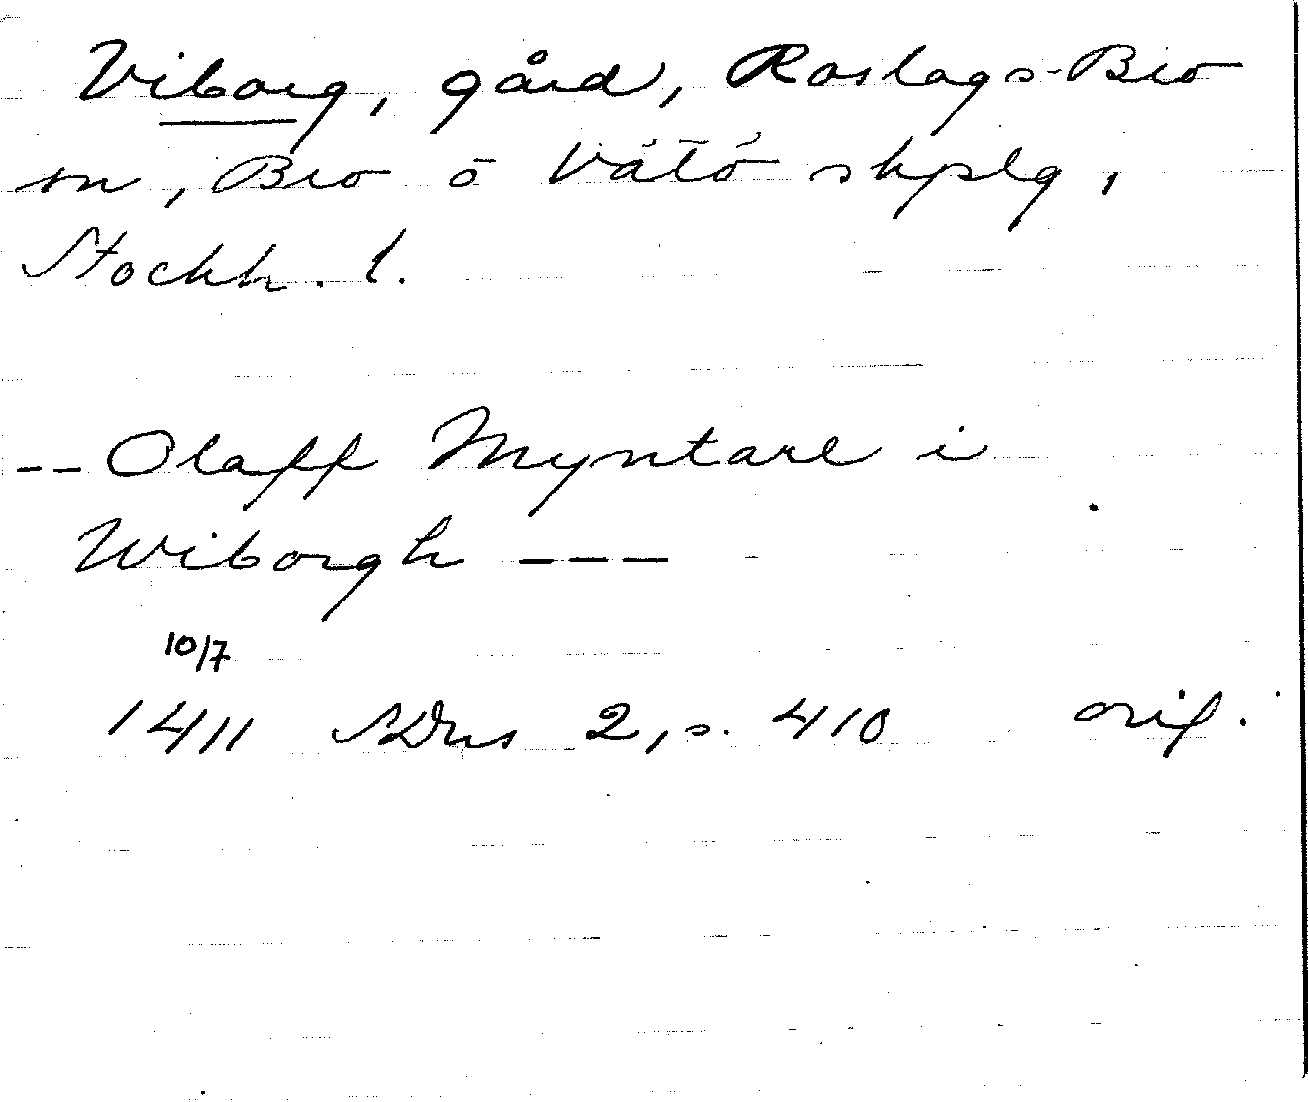 Viborg, gård, Roslags-Bro
sn, Bro o Vätö skpslg,
Stockh. l.
-- Olaff Myntare i
Wiborgh ---
10/7
1411 SDns 2, s. 410 orig.